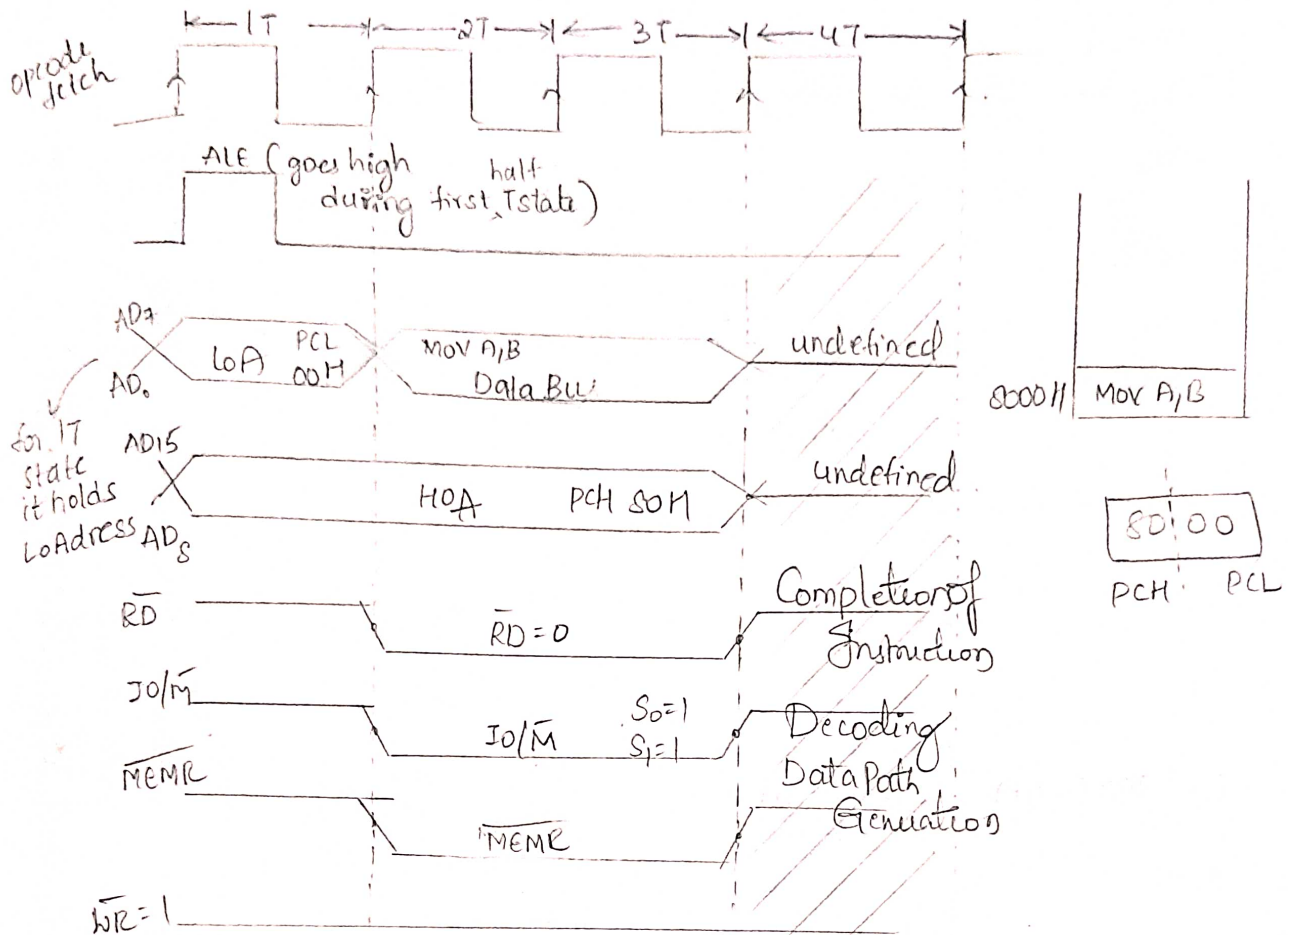 opcode fetch
1T 2T 3T 4T
ALE (goes high
during first half T state)
AD7
AD0
LOA PCL
00H
MOV A,B
Data Bus
undefined
8000H MOV A,B
for 1T
state
it holds
LoAdress
AD15
AD8
HOA PCH 80H
undefined
80 00
PCH PCL
R̅D̅
R̅D̅=0
Completion of
Instruction
IO/M̅
IO/M̅
S0=1
S1=1
Decoding
Data Path
Genuation
M̅E̅M̅R̅
M̅E̅M̅R̅
W̅R̅=1